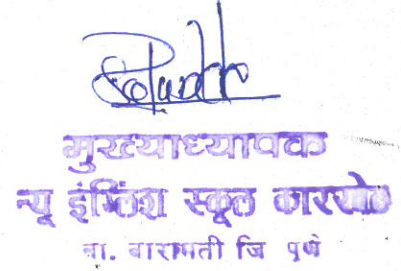 मुख्याध्यापक
न्यू इंग्लिश स्कूल कारखेल
ता. बारामती जि पुणे